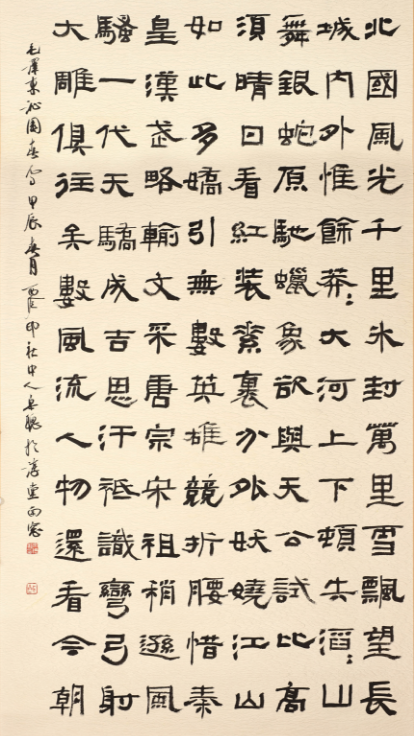 北國風光千里氷封萬里雪飄望長
城內外惟餘莽：大河上下頓失滔：山
舞銀蛇原馳蠟象欲與天公試比高
須晴日看紅裝素裹分外妖嬈江山
如此多嬌引無數英雄競折腰惜秦
皇漢武略輸文采唐宗宋祖稍遜風
騷一代天驕成吉思汗祗識彎弓射
大雕俱往矣數風流人物還看今朝
毛澤東沁園春雪甲辰春月西泠印社中人於南窓